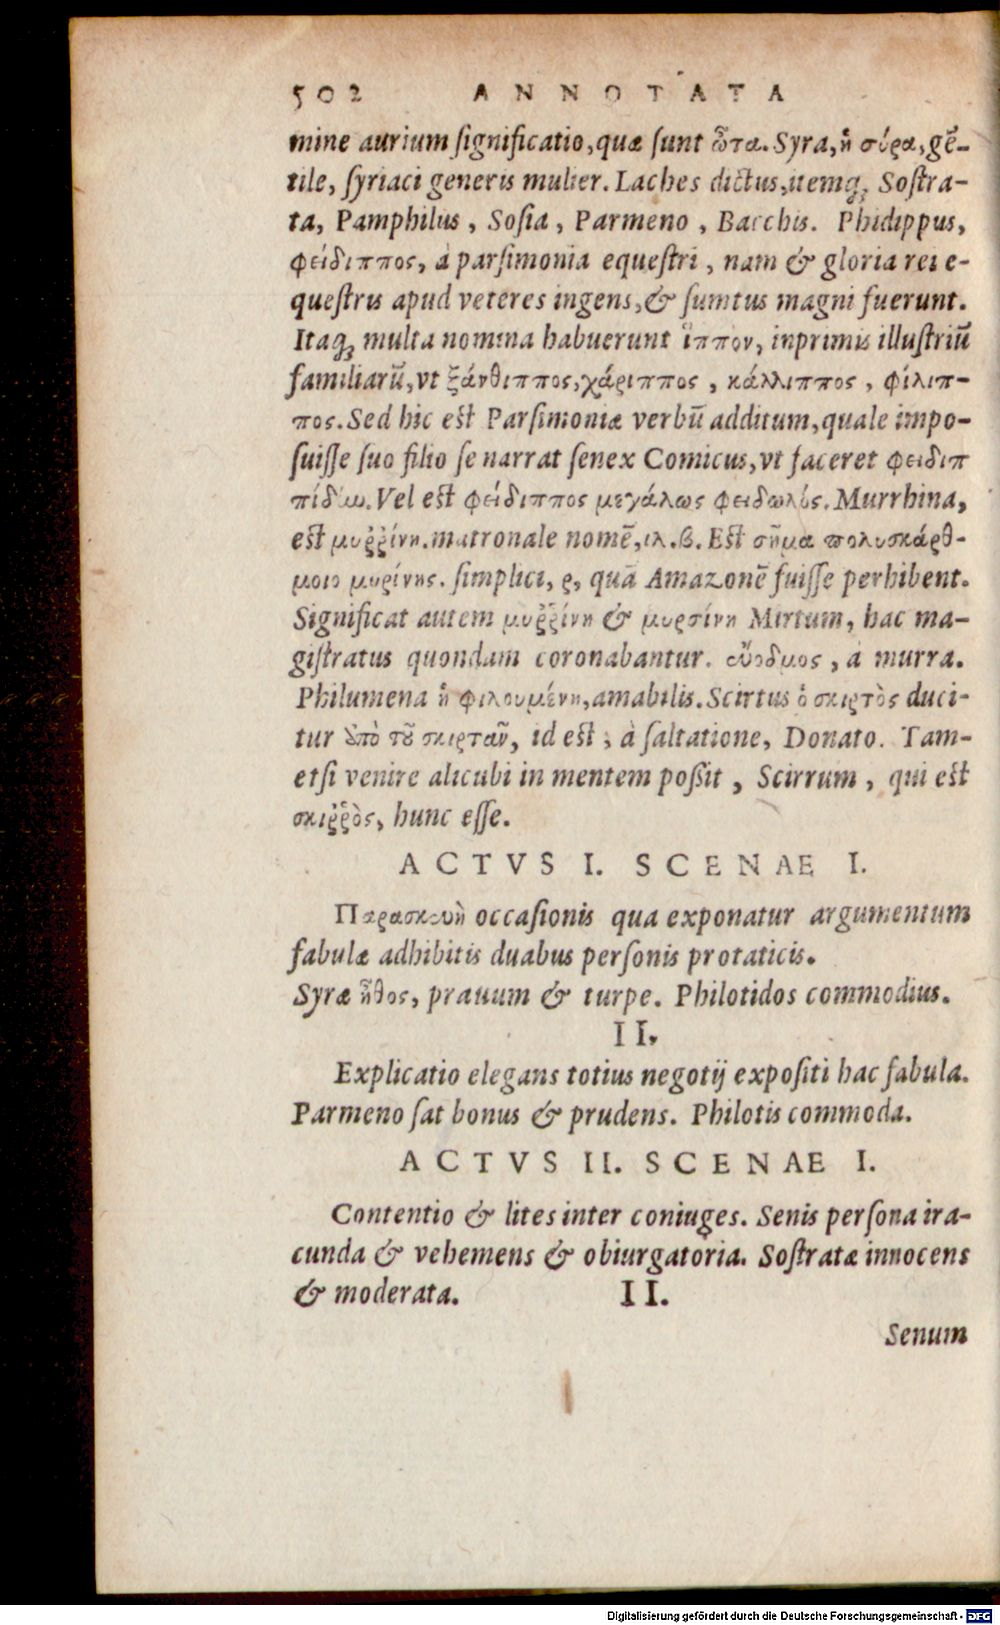 502 ANNOTATA
mine aurium ſignificatio, quæ ſunt ὦτα. Syra, ἡ σύρα, gẽ-
tile, ſyriaci generis mulier. Laches dictus, itemq́ꝫ Soſtra-
ta, Pamphilus, Soſia, Parmeno, Bacchis. Phidippus,
φείδιππος, à parſimonia equeſtri, nam & gloria rei e-
queſtris apud veteres ingens, & ſumtus magni fuerunt.
Itaqꝫ multa nomina habuerunt ἵππον, inprimis illuſtriũ
familiarũ, vt ξάνθιππος, χάριππος, κάλλιππος, φίλιπ-
πος. Sed hic est Parſimoniæ verbũ additum, quale impo-
ſuiſſe ſuo filio ſe narrat ſenex Comicus, vt faceret φειδιπ
πίδίω. Vel est φείδιππος μεγάλως φειδωλός. Murrhina,
est μυῤῥίνη. matronale nomẽ, ιλ. β. Est σῆμα πολυσκάρθ-
μοιο μυρίνης. ſimplici, ρ, quã Amazonẽ fuiſſe perhibent.
Significat autem μυῤῥίνη & μυρσίνη Mirtum, hac ma-
giſtratus quondam coronabantur. εὔοδμος, à murra.
Philumena ἡ φιλουμένη, amabilis. Scirtus ὁ σκιρτὸς duci-
tur ὑπὸ τοῦ σκιρτᾶν, id est, à ſaltatione, Donato. Tam-
etſi venire alicubi in mentem poſsit, Scirrum, qui est
σκιῤῥὸς, hunc eſſe.
ACTVS I. SCENAE I.
Παρασκευὴ occaſionis qua exponatur argumentum
fabulæ adhibitis duabus perſonis protaticis.
Syræ ἦθος, prauum & turpe. Philotidos commodius.
II.
Explicatio elegans totius negotij expoſiti hac fabula.
Parmeno ſat bonus & prudens. Philotis commoda.
ACTVS II. SCENAE I.
Contentio & lites inter coniuges. Senis perſona ira-
cunda & vehemens & obiurgatoria. Soſtratæ innocens
& moderata. II.
Senum
Digitalisierung gefördert durch die Deutsche Forschungsgemeinschaft - DFG